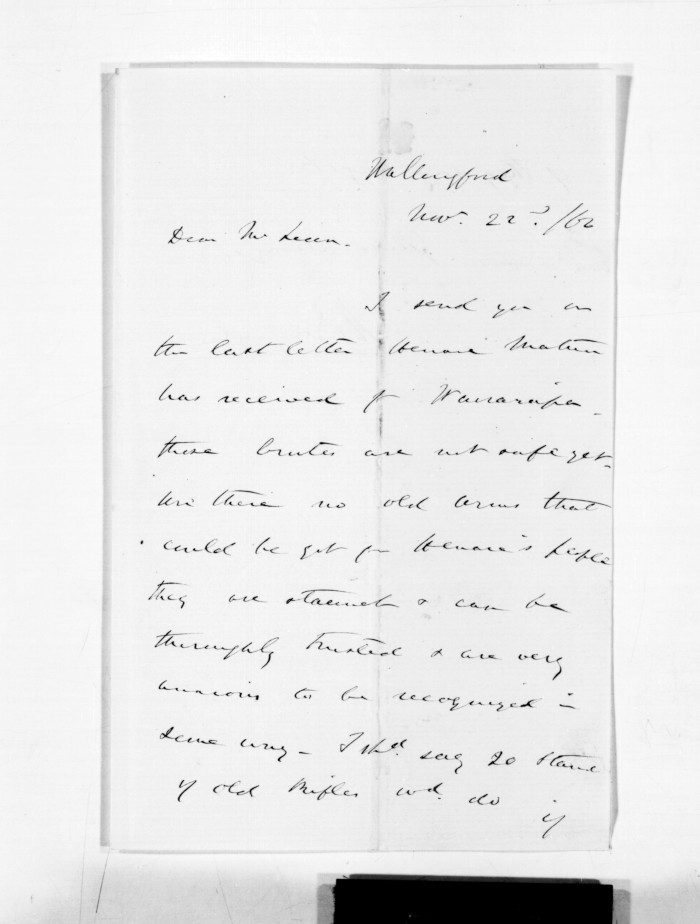 Wallingford
Nov. 22d. /62
Dear McLean.
I send you on
the last letter Henare Matua
has received fr Wairarapa -
these brutes are not safe yet -
are there no old arms that
could be got for Henare's people
they are staunch & can be
thoroughly trusted & are very
anxious to be recognized in
some way - I shd. say 20 stand
of old Rifles wd. do if